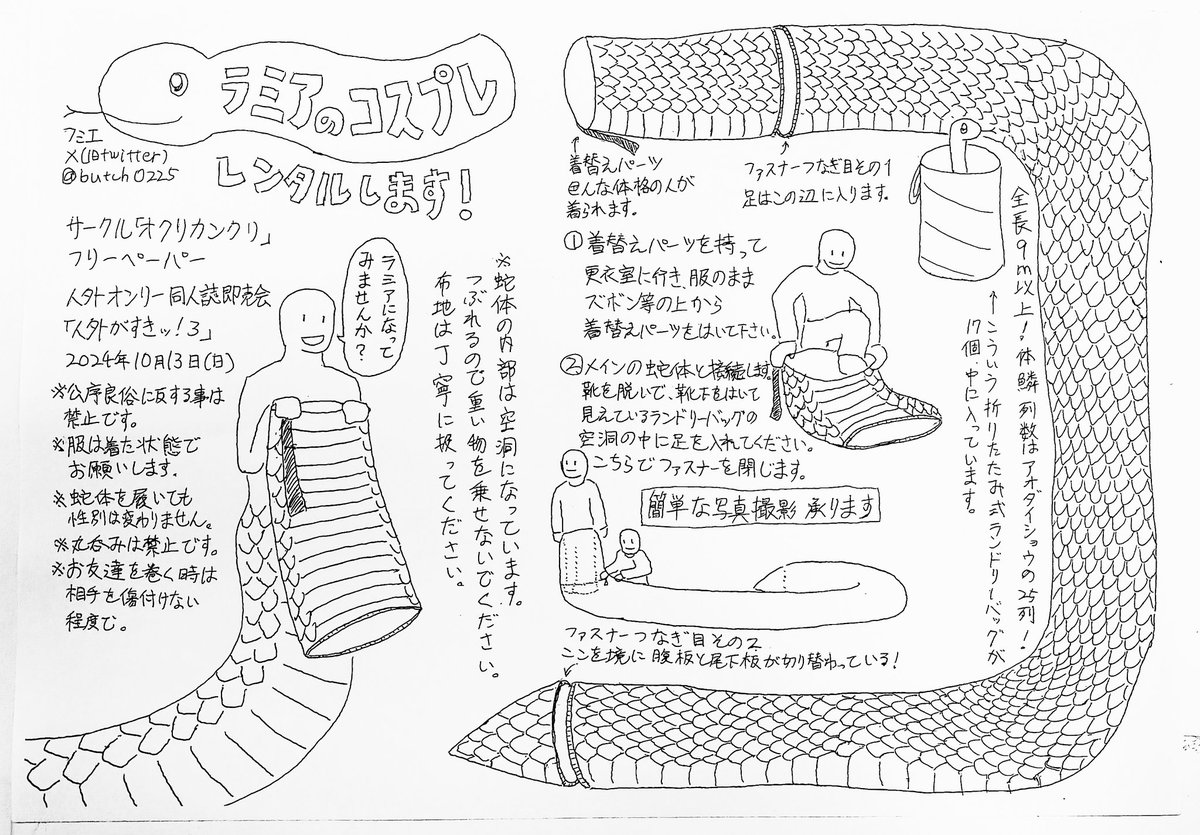 ラミアのコスプレ
レンタルします!
フミエ
X(旧twitter)
@butch0225
サークル「オクリカンクリ」
フリーペーパー
人外オンリー同人誌即売会
「人外がすきッ!3」
2024年10月13日(日)
※公序良俗に反する事は
禁止です。
※服は着た状態で
お願いします。
※蛇体を履いても
性別は変わりません。
※丸呑みは禁止です。
※お友達を巻く時は
相手を傷付けない
程度で。
ラミアになって
みませんか?
※蛇体の内部は空洞になっています。
つぶれるので重い物を乗せないでください。
布地は丁寧に扱ってください。
↑
着替えパーツ
どんな体格の人が
着られます。
↑
ファスナーつなぎ目その1
足はこの辺に入ります。
①着替えパーツを持って
更衣室に行き、服のまま
ズボン等の上から
着替えパーツをはいて下さい。
②メインの蛇体と接続します。
靴を脱いで、靴下をはいて
見えているランドリーバッグの
空洞の中に足を入れてください。
こちらでファスナーを閉じます。
簡単な写真撮影承ります
全長9m以上!体鱗列数はアオダイショウの25列!
←こういう折りたたみ式ランドリーバッグが
17個、中に入っています。
ファスナーつなぎ目その2
ここを境に腹板と尾下板が切り替わっている!